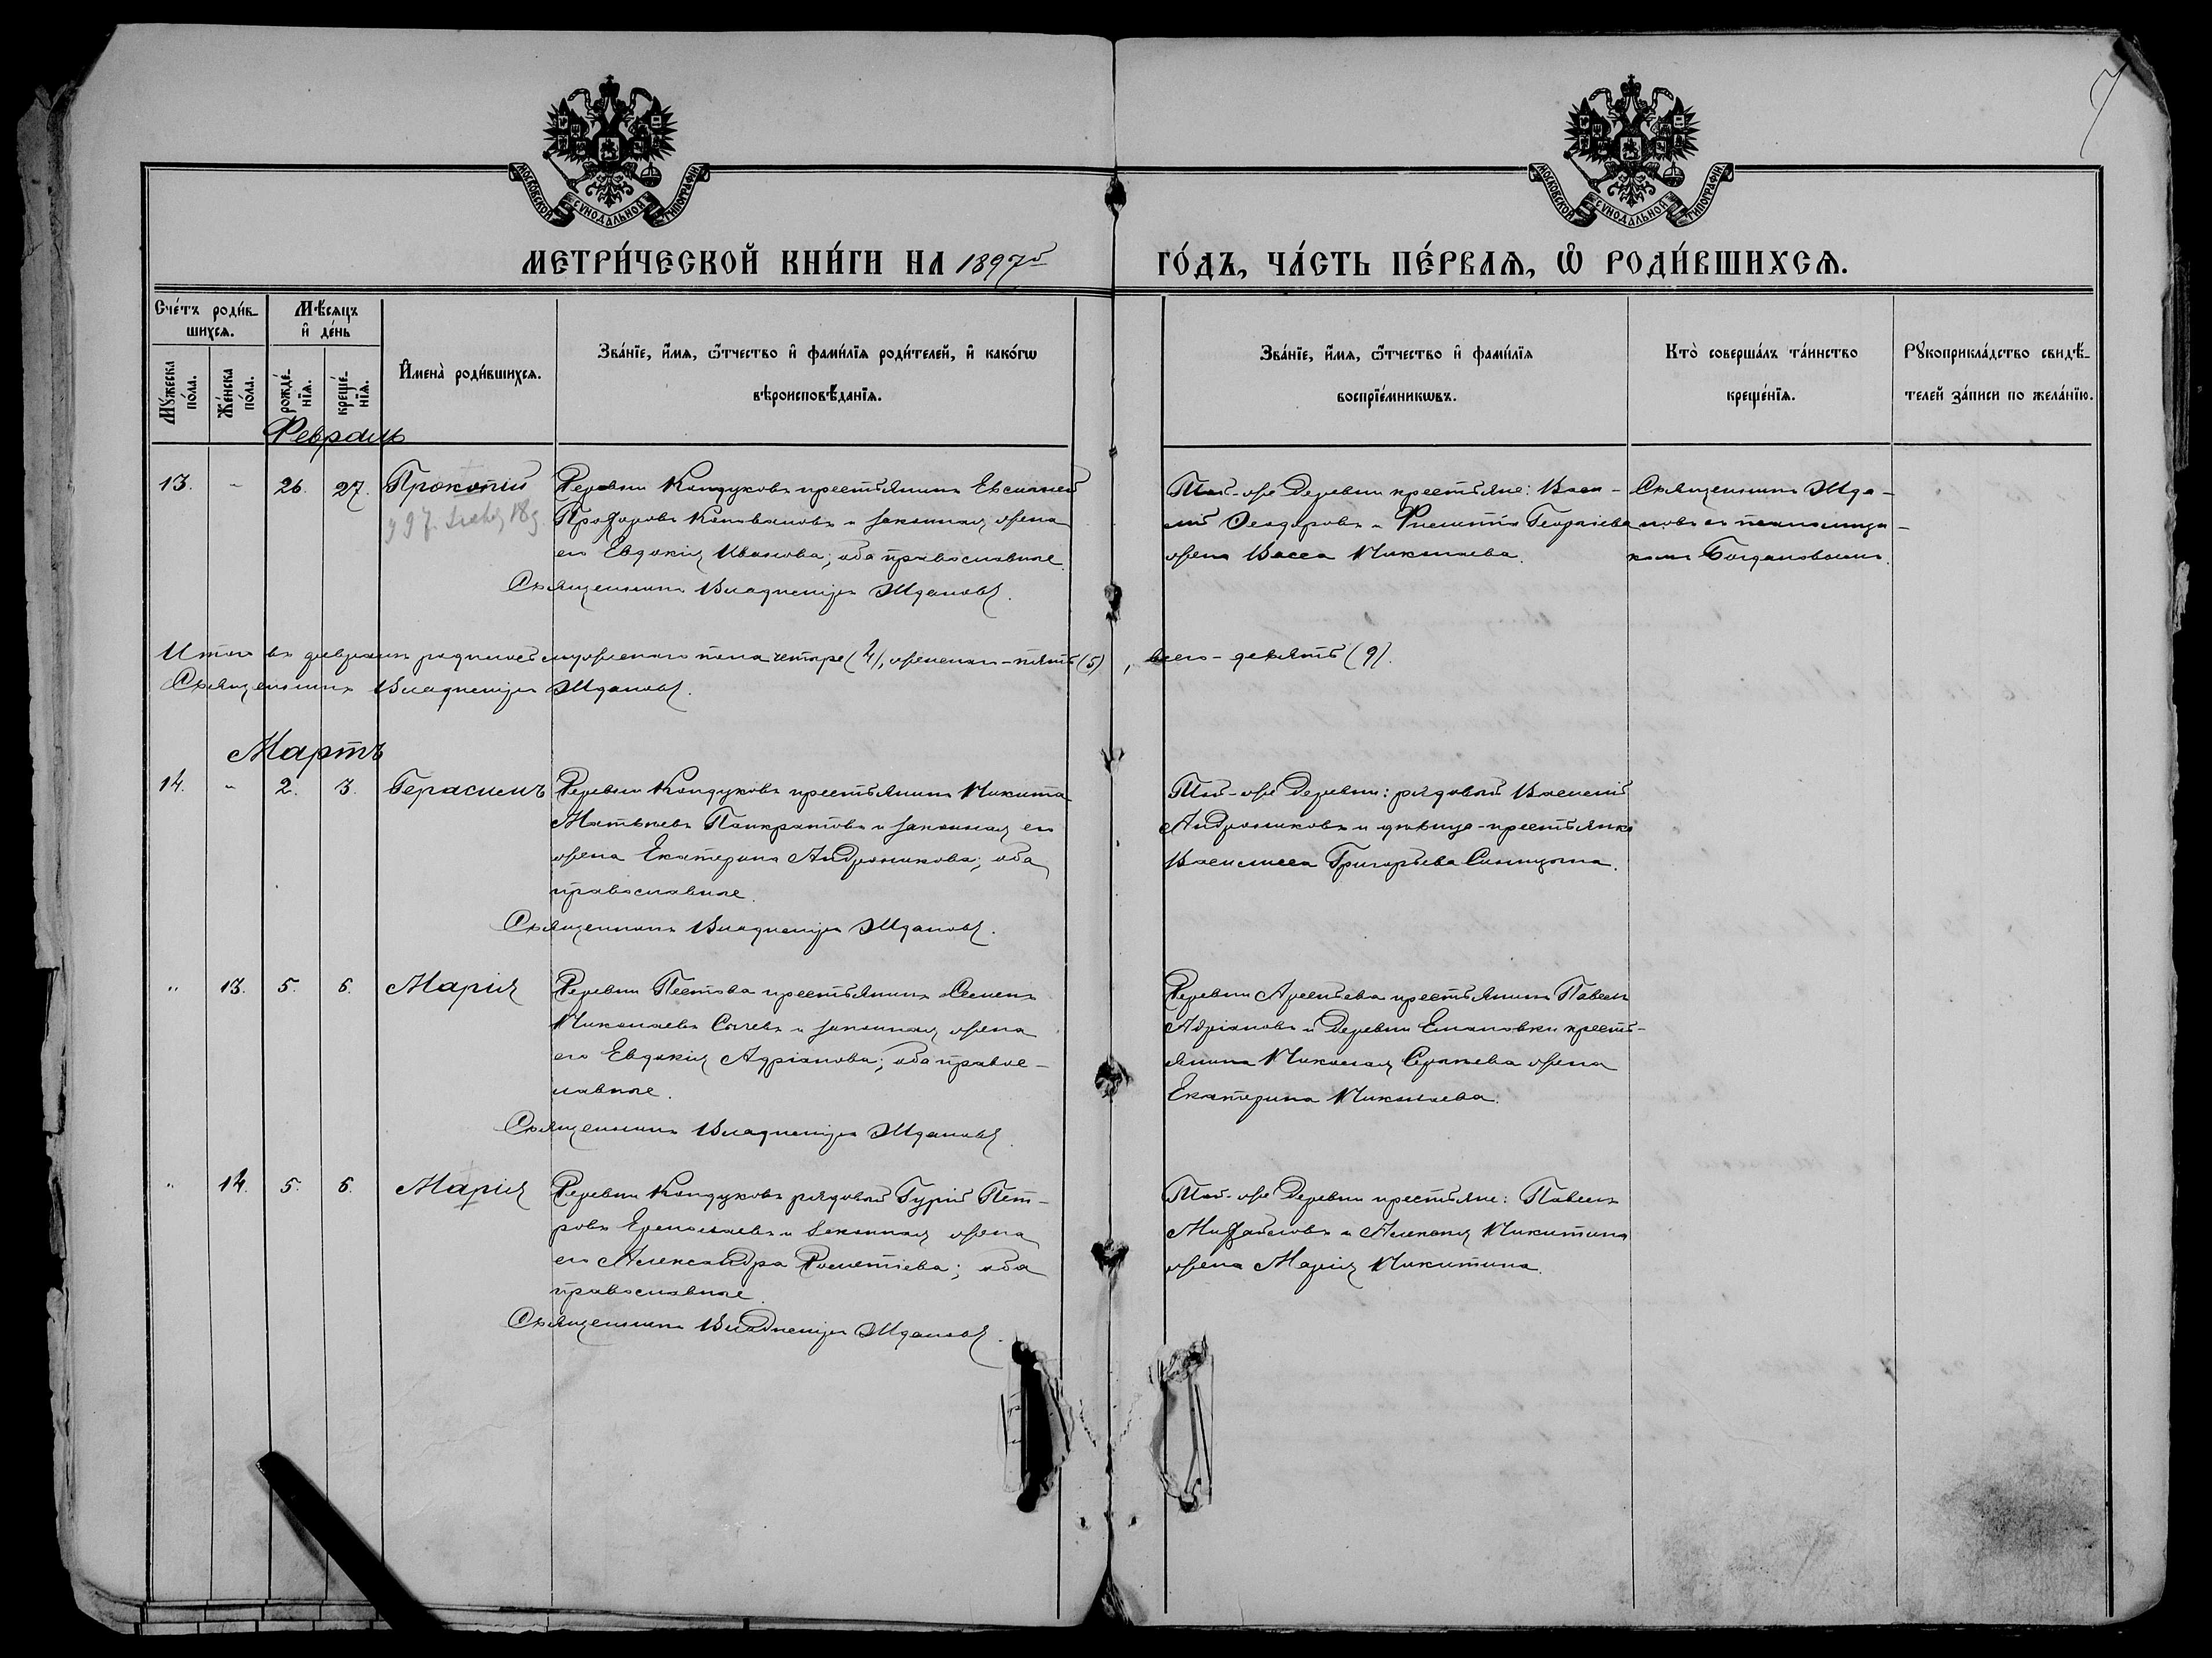 7
МОСКОВСКОЙ СѴНОДАЛЬНОЙ ТИПОГРАФІИ
МОСКОВСКОЙ СѴНОДАЛЬНОЙ ТИПОГРАФІИ
МЕТРИ́ЧЕСКОЙ КНИ́ГИ НА 1897й ГО́ДЪ, ЧА́СТЬ ПЕ́РВАѦ, Ѡ҆ РОДИ́ВШИХСѦ.
Сче́тъ роди́вшихсѧ.
Мꙋ́жеска по́ла.
Же́нска по́ла.
Мѣ́сяцъ и҆ де́нь
рожде́нїѧ.
креще́нїѧ.
И҆мена̀ роди́вшихсѧ.
Зва́нїе, и҆́мѧ, ѻ҆́тчество и҆ фами́лїѧ роди́телей, и҆ како́гѡ
вѣроисповѣ́данїѧ.
Зва́нїе, и҆́мѧ, ѻ҆́тчество и҆ фами́лїѧ
воспрїе́мникѡвъ.
Кто̀ соверша́лъ та́инство
креще́нїѧ.
Рꙋкоприкла́дство свидѣ́-
телей за́писи по жела́нїю.
Февраль
13. - 26. 27. Прокопій
Деревни Кондуковъ крестьянинъ Евсигней
Прохоровъ и законная жена
его Евдокія Иванова; оба православные.
Священникъ Владиміръ Ждановъ.
Той-же деревни крестьяне: Васи-
лій Ѳеодоровъ и Филиппа Георгіева
жена Васса Николаева.
Священникъ Жда-
новъ съ псаломщи-
комъ Богдановымъ.
Итого въ февралѣ родилось мужескаго пола четыре (4), женскаго - пять (5), всего - девять (9).
Священникъ Владиміръ Ждановъ.
Мартъ
14. " 2. 3. Герасимъ
Деревни Кондуковъ крестьянинъ Никита
Матвѣевъ Панкратовъ и законная его
жена Екатерина Андроникова; оба
православные.
Священникъ Владиміръ Ждановъ.
Той-же деревни: рядовой Василій
Андрониковъ и дѣвица-крестьянка
Василисса Григорьева Синицына.
" 13. 5. 6. Марія
Деревни Пестова крестьянинъ Семенъ
Николаевъ Сычевъ и законная жена
его Евдокія Адріанова; оба правос-
лавные.
Священникъ Владиміръ Ждановъ.
Деревни Арсеньева крестьянинъ Павелъ
Адріановъ и деревни Емановки кресть-
янина Николая Сергѣева жена
Екатерина Николаева.
" 14. 5. 6. Марія
Деревни Кондуковъ рядовой Гурій Пет-
ровъ Ермолаевъ и законная жена
его Александра; оба
православные.
Священникъ Владиміръ Ждановъ.
Той-же деревни крестьяне: Павелъ
Михайловъ и Алексѣя Никитина
жена Марія Никитина.